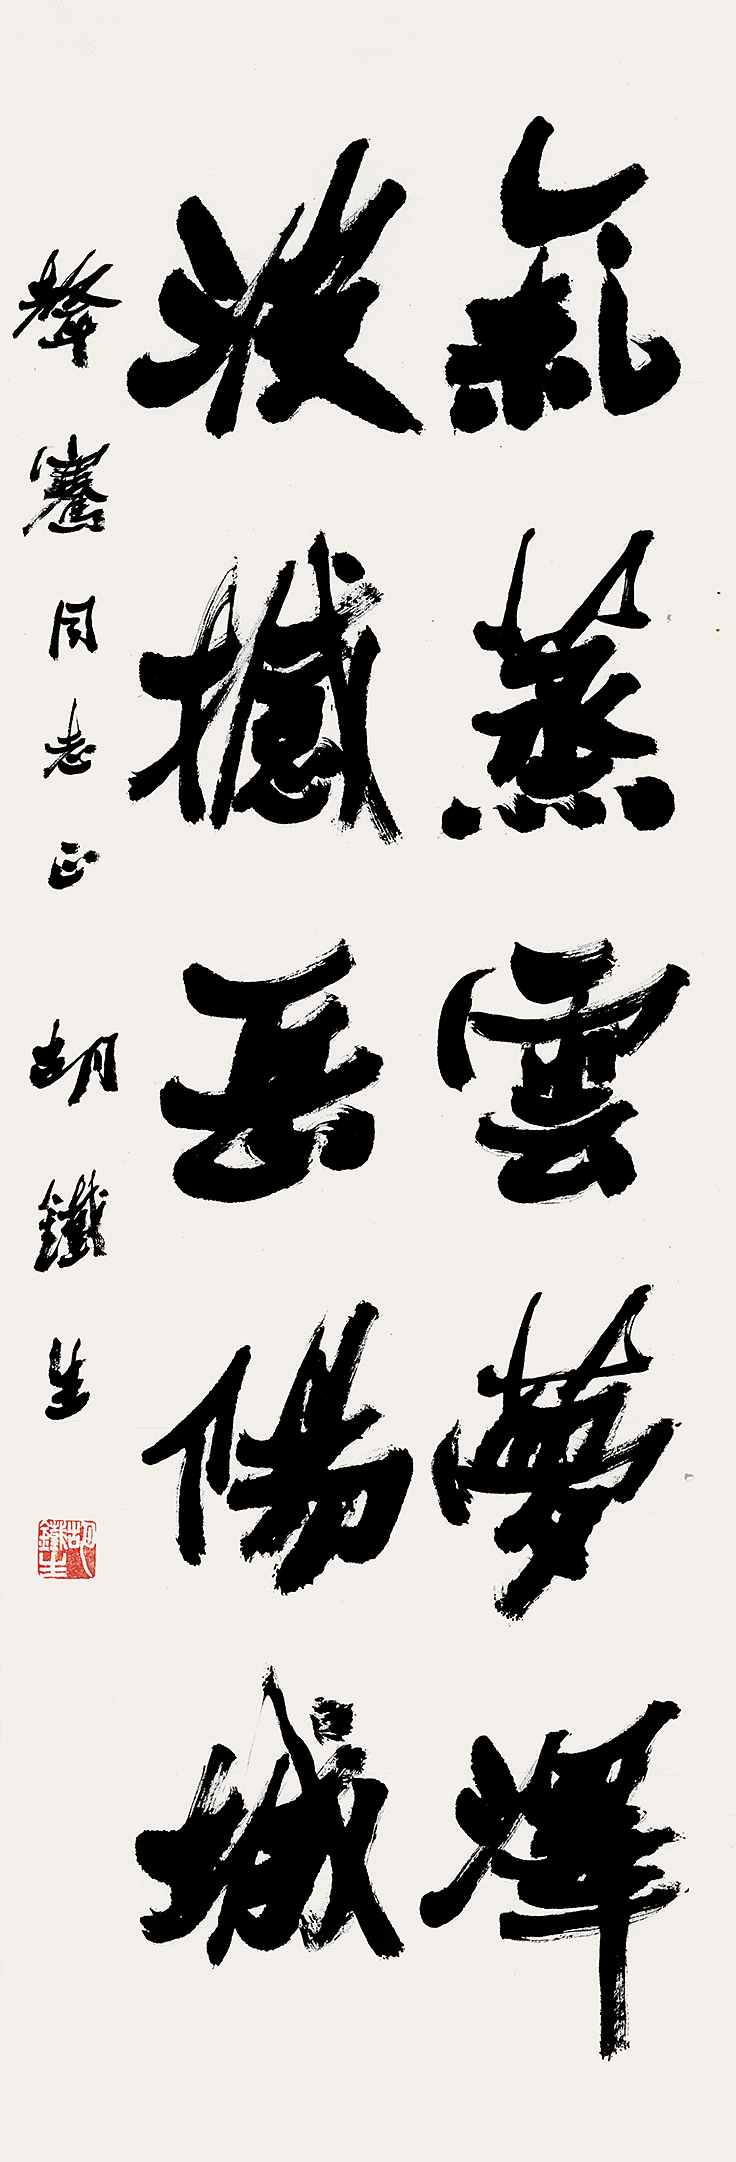 氣蒸雲夢澤
波撼岳陽城
騫同志正 胡鐵生
胡鐵生